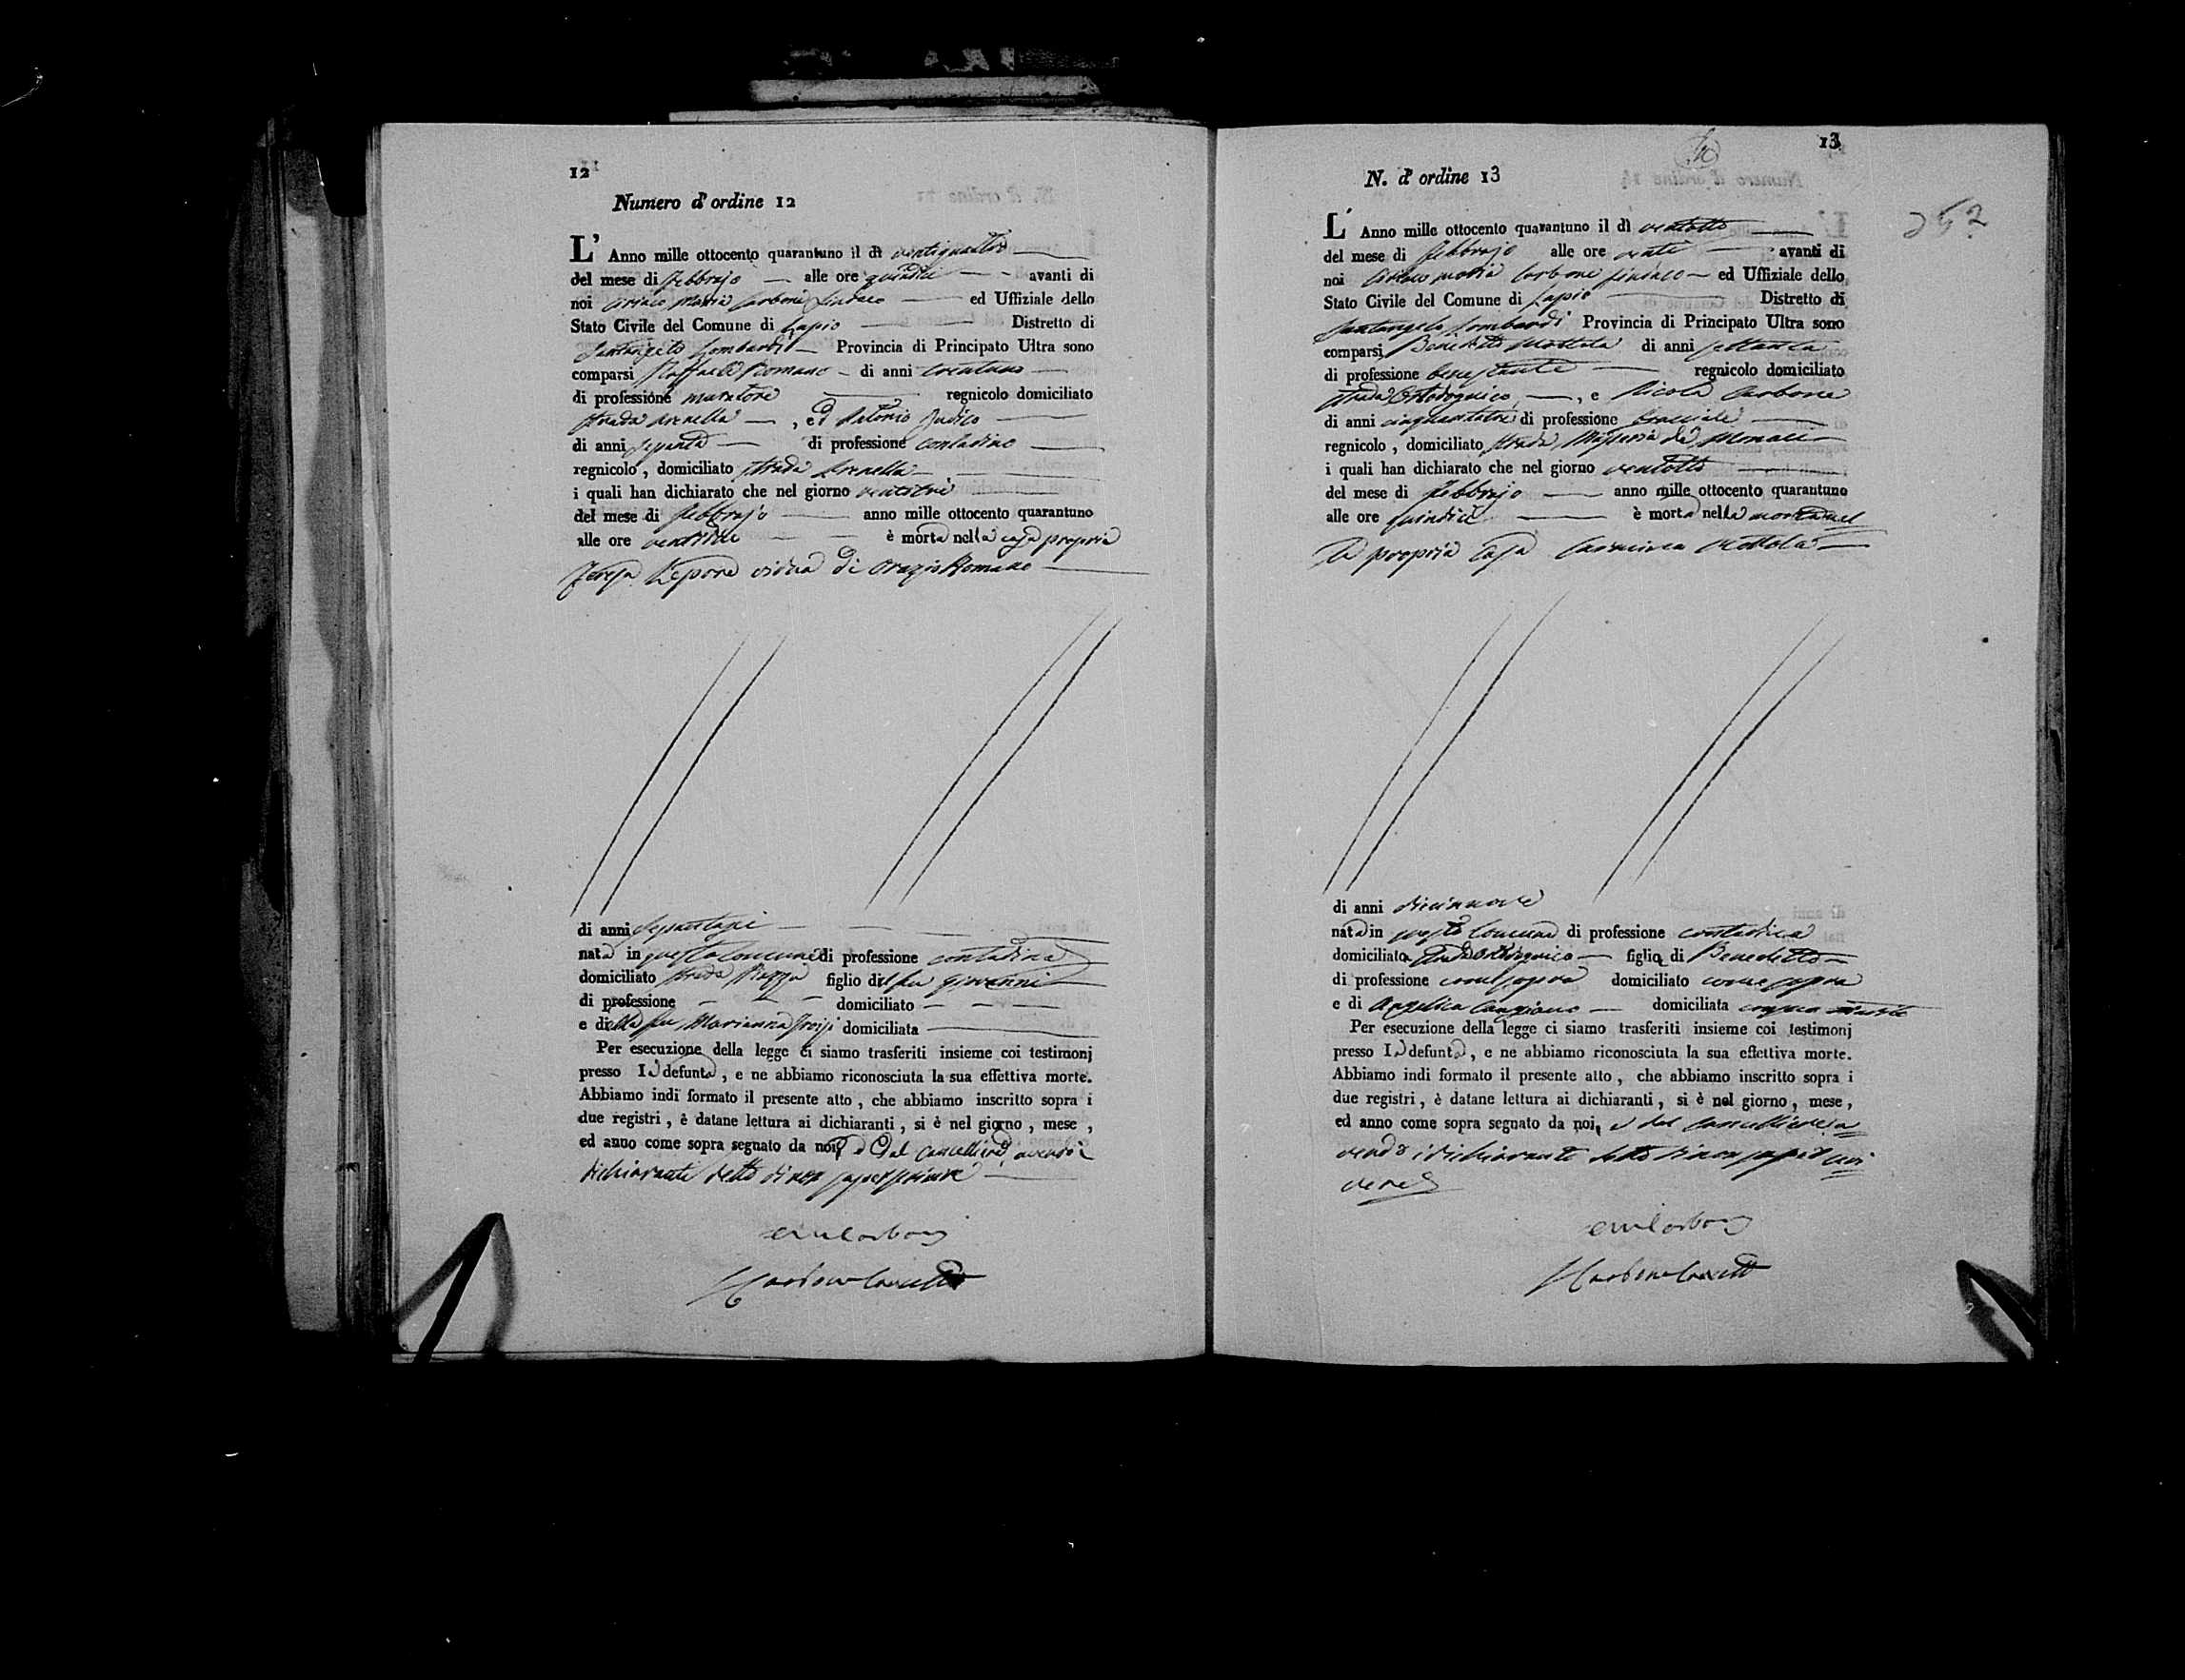 12
Numero d'ordine 12
L' Anno mille ottocento quarantuno il dì ventiquattro
del mese di Febbrajo alle ore quindici avanti di
noi Ciriaco Maria Carbone Sindaco ed Uffiziale dello
Stato Civile del Comune di Lapio Distretto di
Santangelo Lombardi Provincia di Principato Ultra sono
comparsi Raffaele Romano di anni trentuno
di professione muratore regnicolo domiciliato
strada Arenella , ed Antonio Judico
di anni sessanta di professione contadino
regnicolo , domiciliato strada Arenella
i quali han dichiarato che nel giorno ventitre
del mese di Febbrajo anno mille ottocento quarantuno
alle ore ventitre è morta nella casa propria
Teresa Lepore vidua di Orazio Romano
di anni
nata in questo Comune di professione contadina
domiciliato strada Piazza figlio del fu Giovanni
di professione domiciliato
e della fu Marianna Troisi domiciliata
Per esecuzione della legge ci siamo trasferiti insieme coi testimonj
presso la defunta , e ne abbiamo riconosciuta la sua effettiva morte.
Abbiamo indi formato il presente atto , che abbiamo inscritto sopra i
due registri , è datane lettura ai dichiaranti , si è nel giorno , mese ,
ed anno come sopra segnato da noi, e dal Cancelliere, avendo i
dichiaranti detto di non saper scrivere
13
N. d'ordine 13
252
L' Anno mille ottocento quarantuno il dì ventotto
del mese di Febbrajo alle ore venti avanti di
noi Ciriaco Maria Carbone Sindaco ed Uffiziale dello
Stato Civile del Comune di Lapio Distretto di
Santangelo Lombardi Provincia di Principato Ultra sono
comparsi Benedetto Mottola di anni settanta
di professione benestante regnicolo domiciliato
strada , e Nicola Carbone
di anni cinquantatre di professione bracciale
regnicolo , domiciliato strada Masseria de Monaci
i quali han dichiarato che nel giorno ventotto
del mese di Febbrajo anno mille ottocento quarantuno
alle ore quindici è morta nella
la propria casa Carmina Mottola
di anni diciannove
nata in questo Comune di professione contadina
domiciliata figlia di Benedetto
di professione come sopra domiciliato come sopra
e di Angelica Cangiano domiciliata
Per esecuzione della legge ci siamo trasferiti insieme coi testimonj
presso la defunta , e ne abbiamo riconosciuta la sua effettiva morte.
Abbiamo indi formato il presente atto , che abbiamo inscritto sopra i
due registri , è datane lettura ai dichiaranti , si è nel giorno , mese ,
ed anno come sopra segnato da noi, e dal Cancelliere, a
vendo i dichiaranti detto di non saper scri
vere